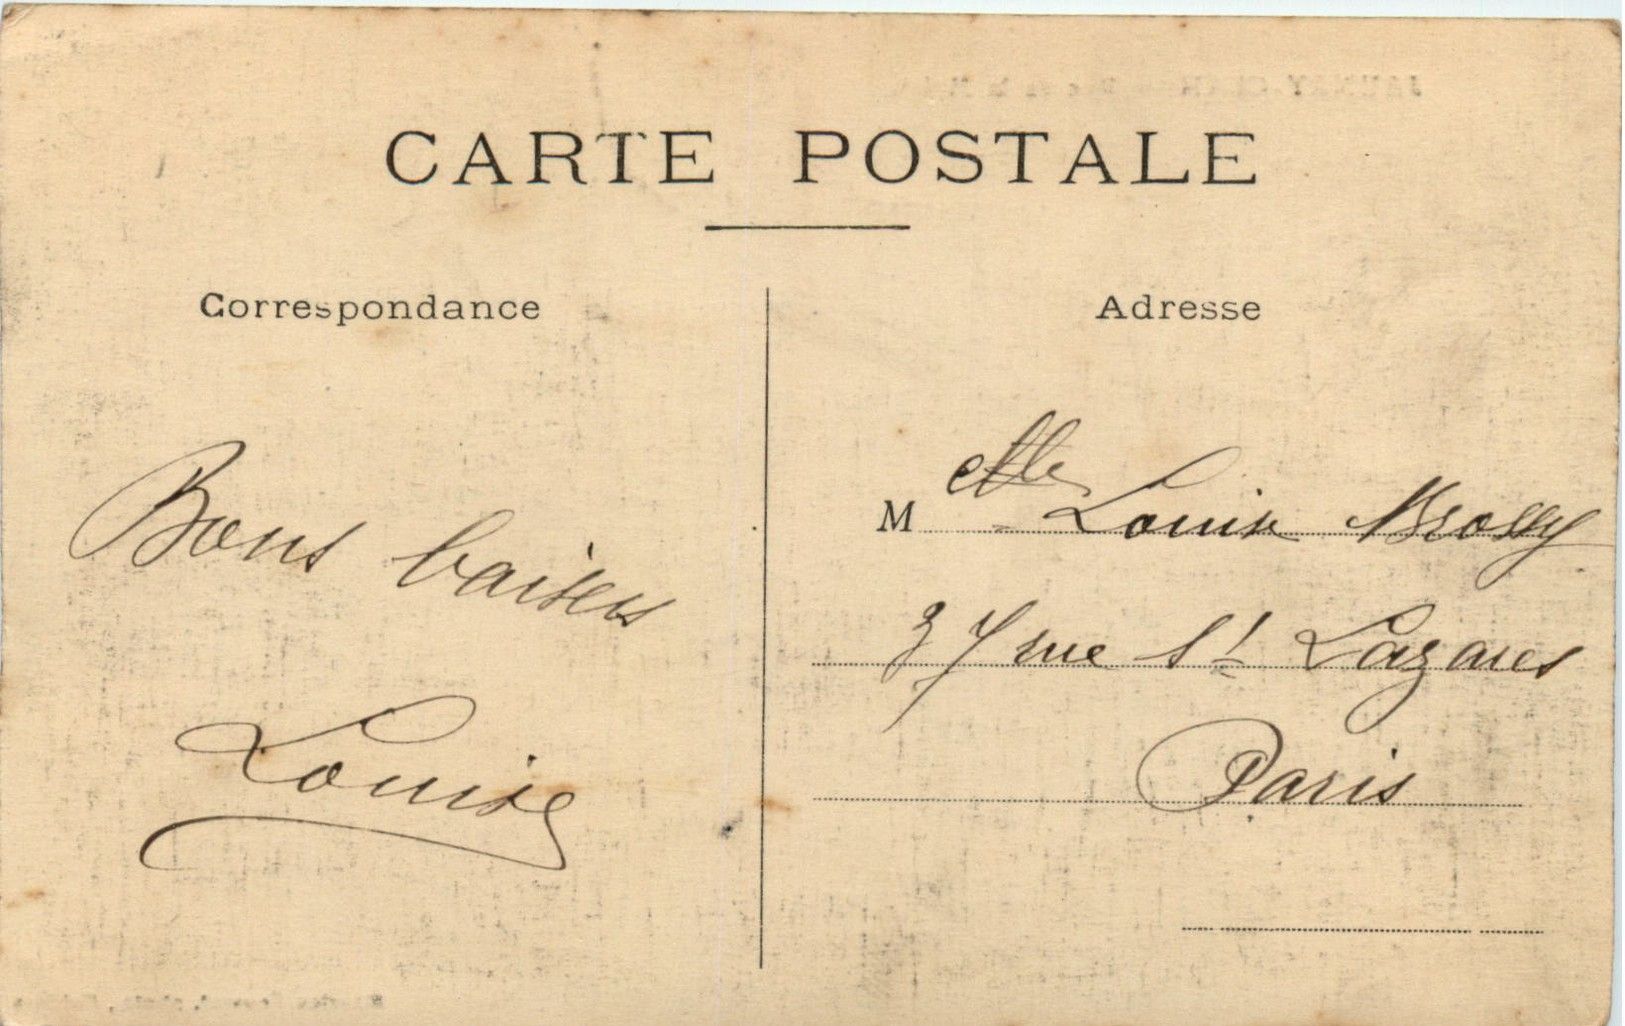 CARTE POSTALE
Correspondance
Bons baisers
Louise
Adresse
M elle Louise Brossy
37 rue St Lazares
Paris